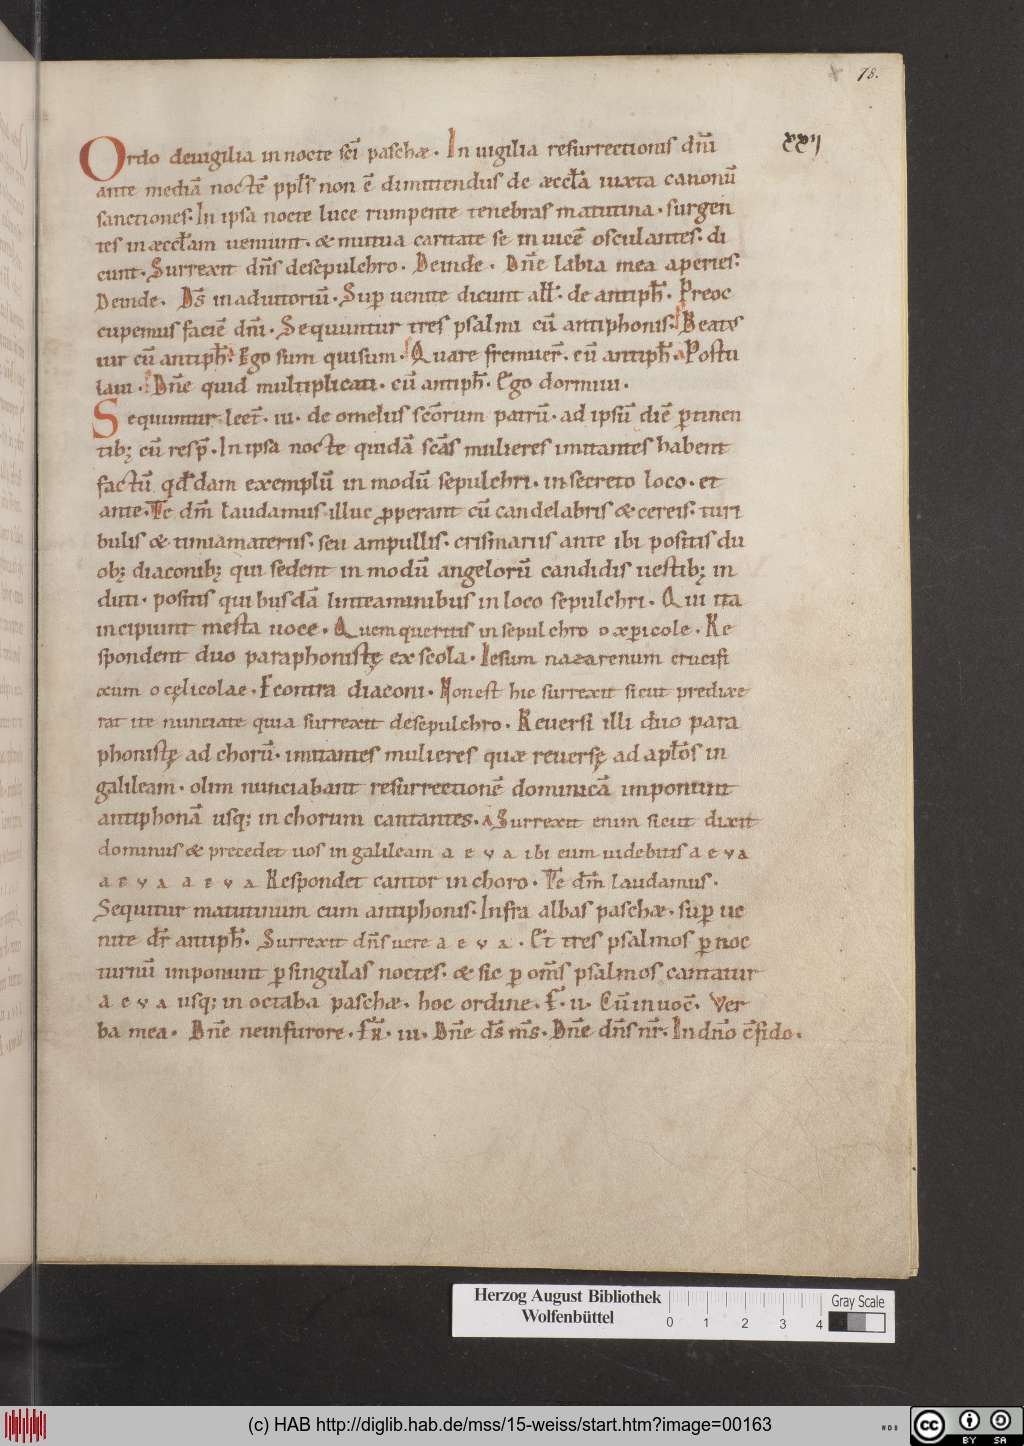 78.
xxij
Ordo deuigilia in nocte sc̄i paschæ. In uigilia resurrectionis dn̄i
ante mediā noctē ppl̄s non ē dimittendus de æccl̄a iuxta canonū
sanctiones. In ipsa nocte luce rumpente tenebras matutina. surgen
tes in æccl̄am ueniunt. & mutua caritate se in uicē osculantes. di
cunt. Surrexit dn̄s desepulchro. Deinde. Dn̄e labia mea aperies.
Deinde. Ds̄ in adiutoriū. Sup uenite dicunt all̄. de antiph̄. Preoc
cupemus faciē dn̄i. Sequuntur tres psalmi cū antiphonis. Beatus
uir cū antiph̄. Ego sum quisum. Quare fremuer̄. cū antiph̄. Postu
laui. Dn̄e quid multiplicati. cū antiph̄. Ego dormiui.
Sequuntur lect̄. iii. de omeliis scōrum patrū. ad ipsū diē ꝑtinen
tibꝫ cū resp̄. In ipsa nocte quidā scās mulieres imitantes habent
factū qd̄dam exemplū in modū sepulchri. in secreto loco. et
ante. Te dm̄ laudamus illuc ꝓperant cū candelabris & cereis. turi
bulis & timiamateriis. seu ampullis. crismariis ante ibi positis du
obꝫ diaconibꝫ qui sedent in modū angelorū candidis uestibꝫ in
duti. positis quibusdā linteaminibus in loco sepulchri. Qui ita
incipiunt mesta uoce. Quem queritis in sepulchro o xpicole. Re
spondent duo paraphonistę ex scola. Iesum nazarenum crucifi
xum o cęlicolae. Econtra diaconi. Non est hic surrexit sicut predixe
rat ite nunciate quia surrexit desepulchro. Reuersi illi duo para
phonistę ad chorū. imitantes mulieres quæ reuersę ad apl̄os in
galileam. olim nunciabant resurrectionē dominicā imponunt
antiphonā usqꝫ in chorum cantantes. A Surrexit enim sicut dixit
dominus & precedet uos in galileam a e v a ibi eum uidebitis a e v a
a e v a a e v a Respondet cantor in choro. Te dm̄ laudamus.
Sequitur matutinum cum antiphonis. Infra albas paschæ. sup ue
nite dr̄ antiph̄. Surrexit dn̄s uere a e v a. Et tres psalmos ꝑ noc
turnū imponunt ꝑ singulas noctes. & sic ꝑ om̄s psalmos cantatur
a e v a usqꝫ in octaba paschæ. hoc ordine. F. ii. Cū inuoc̄. Ver
ba mea. Dn̄e neinfurore. fr̄. iii. Dn̄e ds̄ m̄s. Dn̄e dn̄s nr̄. In dn̄o c̄fido.
Herzog August Bibliothek
Wolfenbüttel
0 1 2 3 4
Gray Scale
(c) HAB http://diglib.hab.de/mss/15-weiss/start.htm?image=00163
WDB
cc BY SA